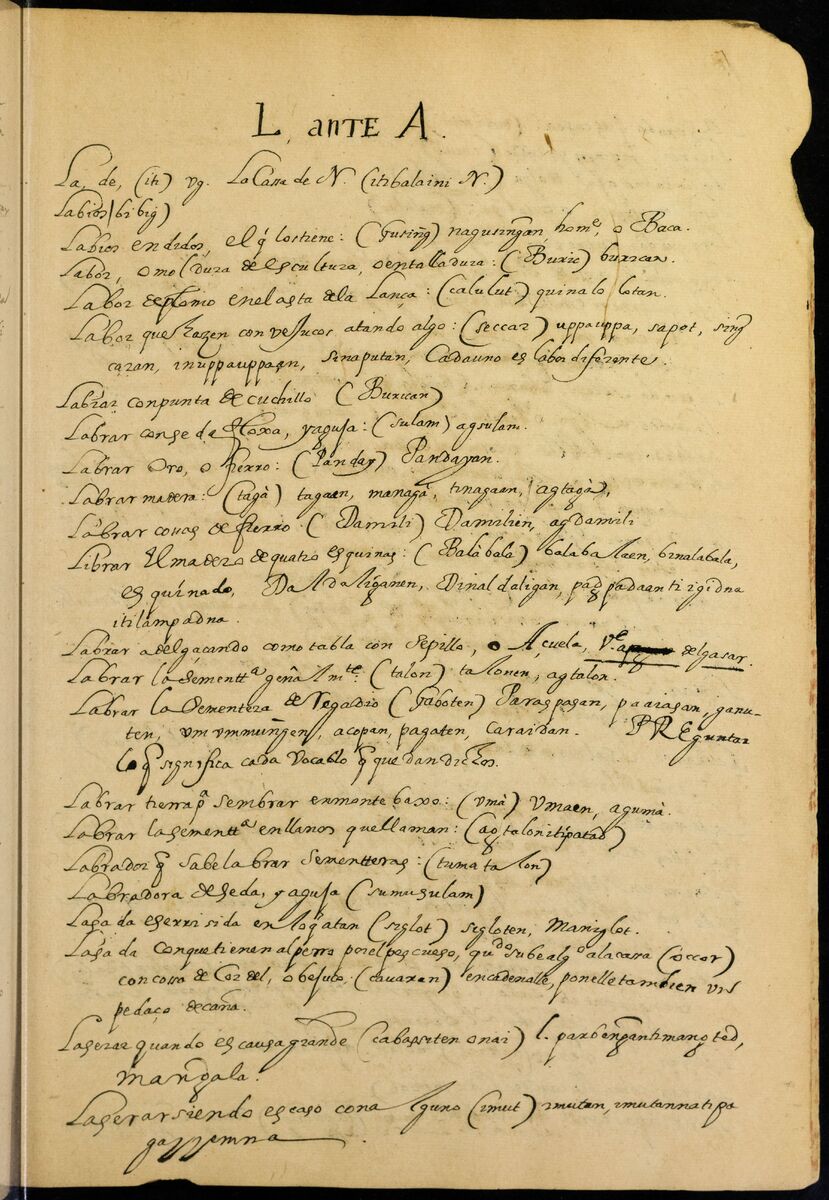 L, anTE A.
La, de, (iti) vg. La Cassa de N. (itibalaini N.)
Labios (bibig)
Labios endidos, el q̃ los tiene: (Gusing̃) nagusing̃an, home, o Baca.
Labor, o moldura de escultura, o entalladura: (Buric) burican.
Labor de plomo en el asta de la Lança: (calulut) quinalo lotan.
Labor que hazen con veJucos atando algo: (seccar) uppauppa, sapot, sing̃
caran, inuppauppaan, sinaputan, Cada uno es labor diferente.
Labrar con punta de cuchillo (Burican)
Labrar con seda floxa, y aguja: (sulam) agsulam.
Labrar Oro, o hierro: (Panday) Pandayan.
Labrar madera: (tagà) tagaan, managà, tinagaan, agtagà,
Labrar cossas de fierro (Damili) Damilien, agdamili
Librar El madero de quatro esquinas: (Balàbala) balabalaen, binalabala,
esquinado, Daldaliganen, Dinaldaligan,
itilampadna.
Labrar adelgaçando como tabla con sepillo, o Açuela, Ve delgasar.
Labrar la sementtª genˡmte: (talon) talonen, agtalon.
Labrar la Sementera de Regadio (Gaboten) Paraspasan, ganu-
ten, acopan, pagaten, caraidan. PREguntar
lo q̃ significa cada vocablo q̃ quedan dichos.
Labrar tierra pª sembrar en monte baxo: (vmà) vmaen, agumà.
Labrar la sementtª en llanos que llaman: (agtalonitipatad)
Labrador q̃ sabe labrar sementteras: (tumatalon)
Labradora de seda, y aguja (sumusulam)
Lasada (siglot) sigloten, maniglot.
Lasada con que tienen al perro por el pescueso, qudo sube algo a la casa (occor)
con cossa de Cordel, o bejuco: (cauaran) encadenalle, ponelle tambien vn
pedaço de caña.
Laserar quando es causa grande (cabassiten onai) l.
mang̃ala.
Laserar siendo escaso con alguno (imut) imutan, imutannatipa